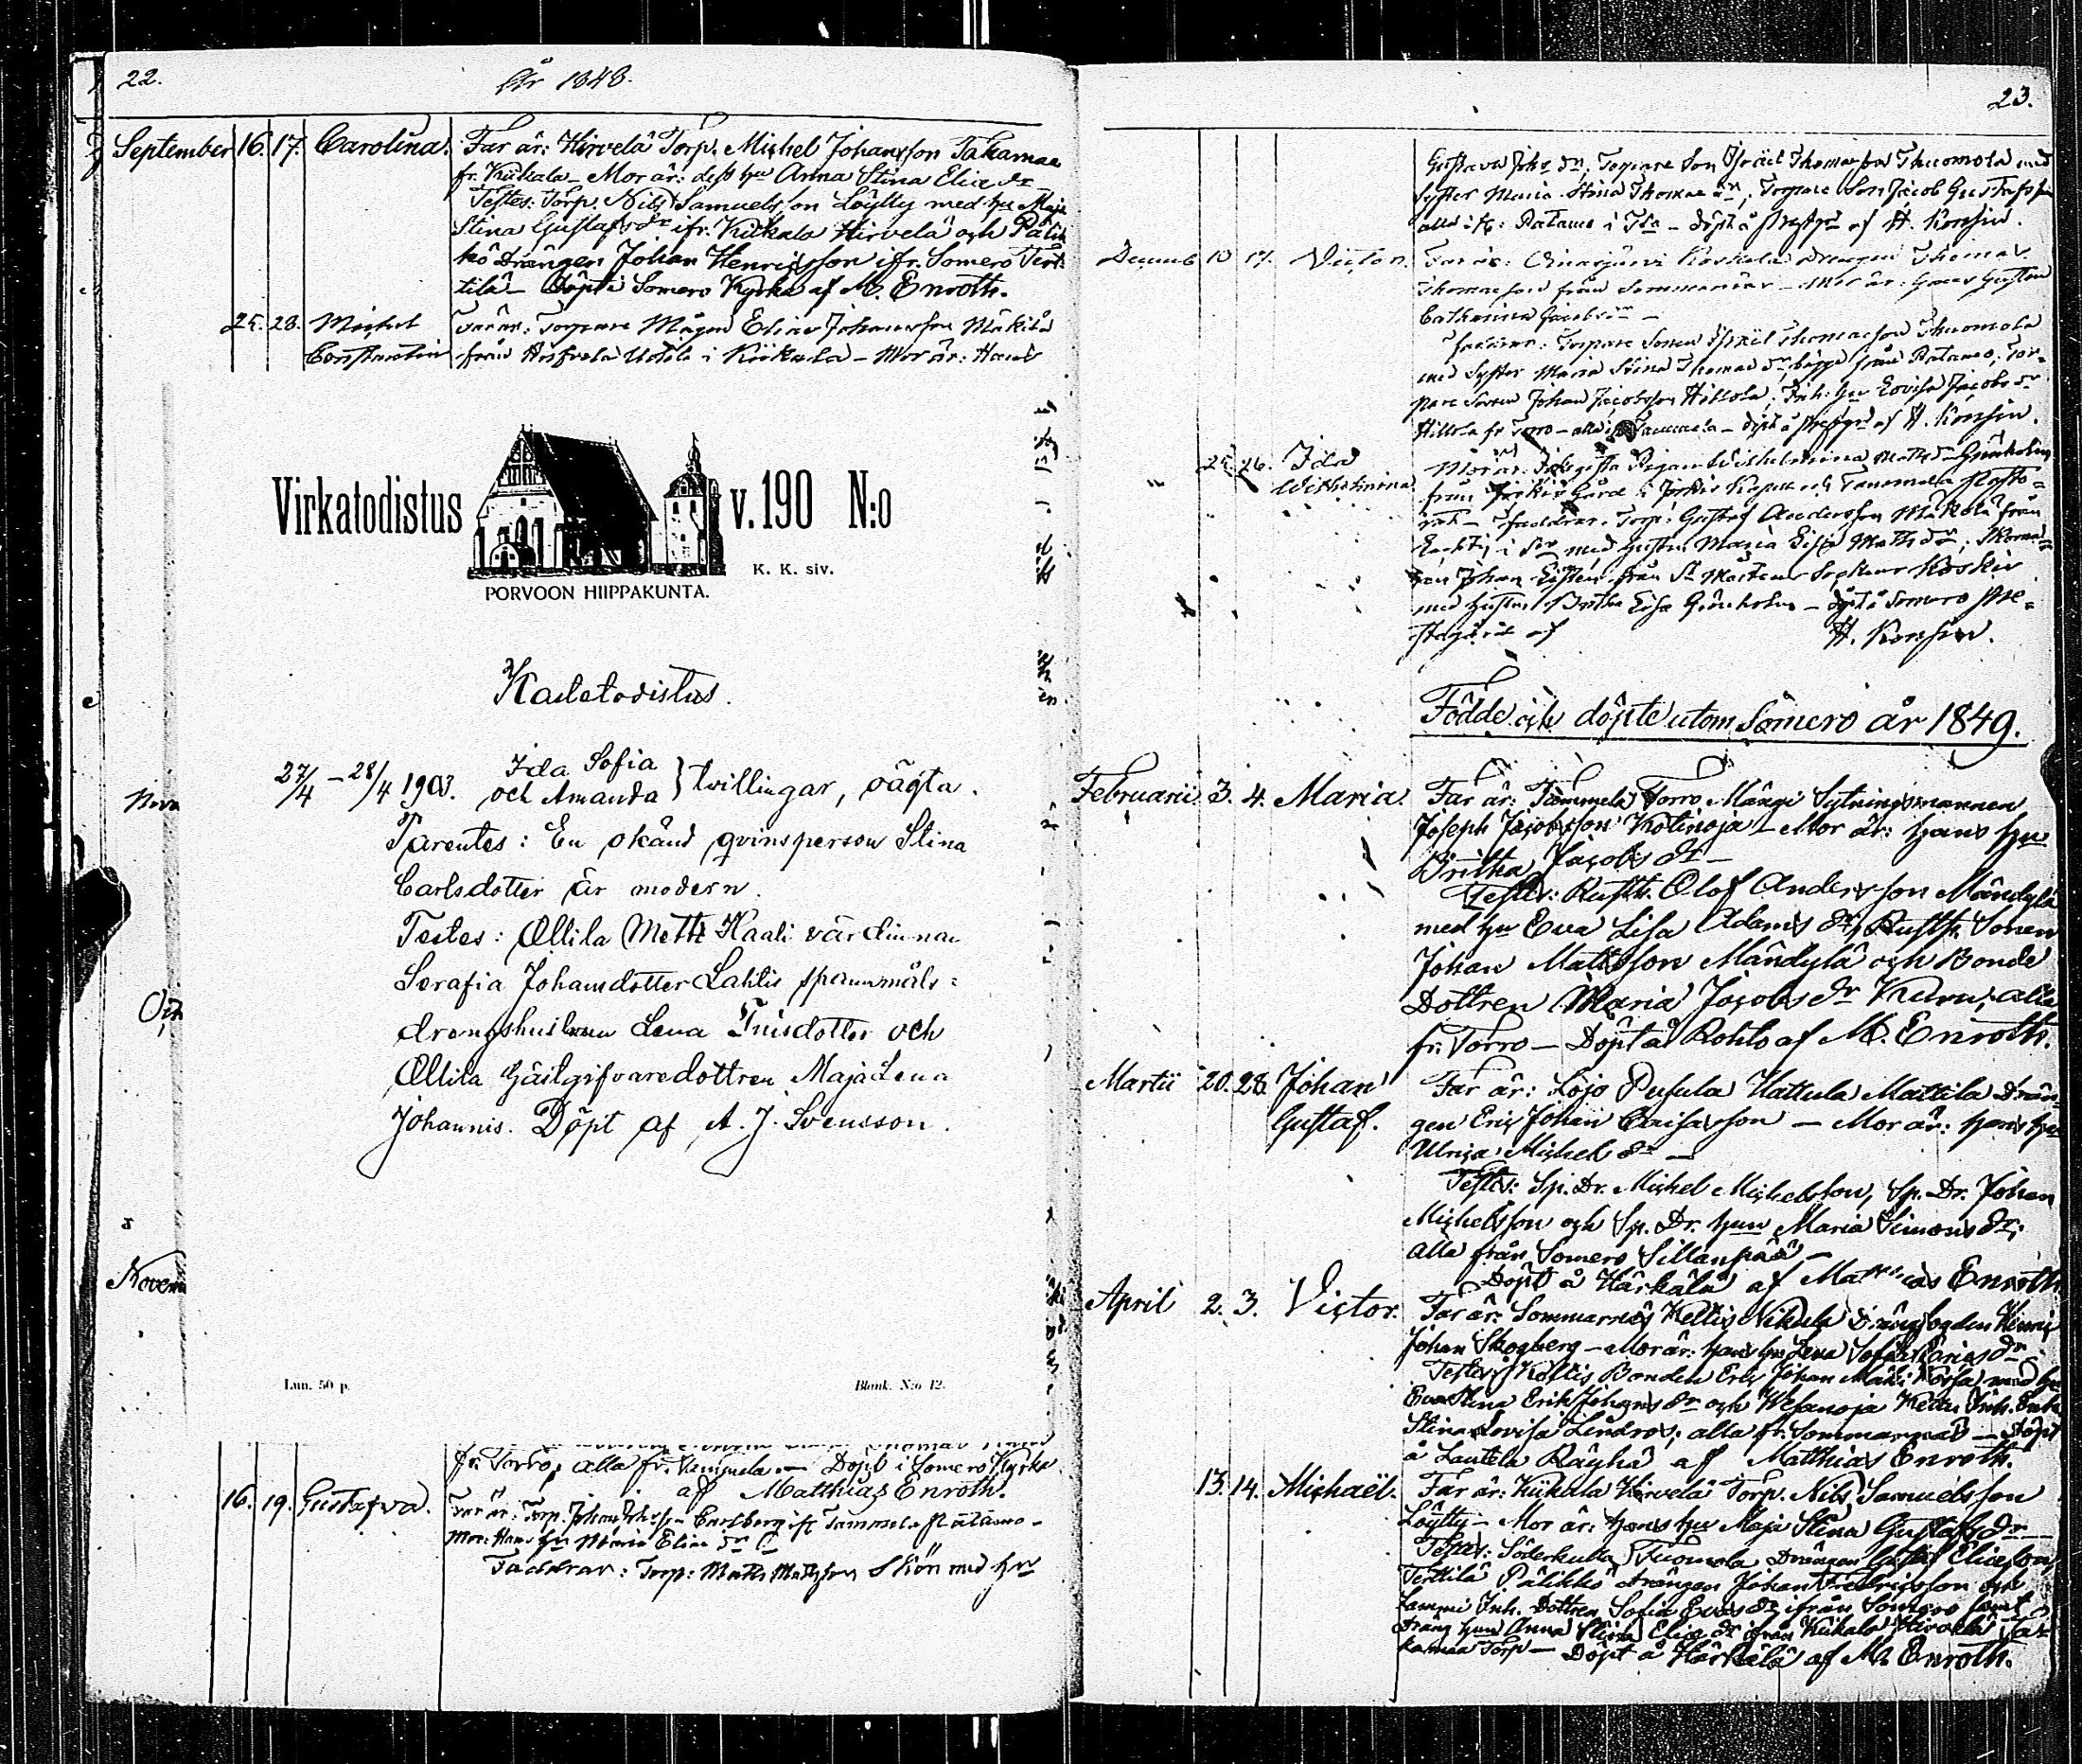 22.
År 1848.
September 16. 17. Carolina. Far är: Hirvelä Torp. Michel Johansson Takamaa
fr. Kiikala – Mor är: dess hu Anna Stina Eliædr
Testes: Torp. Nils Samuelsson Löytty med hu Maja
Stina Gustafsdr ifr. Kiikala Hirvelä och Pälik
kö Drängen Johan Henricsson ifr. Somero Tert
tilä – Döpt i Somero Kyrka af M. Enroth.
25. 28. Michel Far är: Torpare Mågen Elias Johansson Mäkilä
Constantin från Kiikala – Mor är: Hans
Virkatodistus v. 190 N:o
K. K. siv.
PORVOON HIIPPAKUNTA.
Kastetodistus.
27/4 – 28/4 1903. Ida Sofia
och Amanda } tvillingar, oägta.
Parentes: En okänd qvinsperson Stina
Carlsdotter är modern.
Testes: Ollila Matts Kaali värdinnan
Serafia Johansdotter Lahtis spannmåls=
drengshustrun Lena Tuisdotter och
Ollila Gästgifvaredottren Maja Lena
Johannis. Döpt af A. J. Svensson.
Nove
Och
Novem
Lun. 50 p. Blank. N:o 12.
fr. Torro, alla fr. Tammela. – Döpt i Somero Kyrka
af Matthias Enroth.
16. 19. Gustafva. Far är: Torp. Johan Johsson Carlberg ifr Tammela Ratamo –
Mor: Hans hu Maria Eliædr
Faddrar: Torp: Matts Mattsson Skön med hu
23.
Gustava Johsdr, Torpare Son Israel Thomasson Thuomola med
syster Maria Stina Thomædr, Torpare Son Jacob Gustafsson
alla ifr: Ratamo i Tla – döpt å prestgd af H. Konsin.
10 17. Victor. Far är: Koskela drängen Thomas
Thomasson från Sommarnäs – Mor är: Hans Hustru
Catharina Jacobsdr –
Faddrar: Torpare Sonen Israel Thomasson Thuomola
med Syster Maria Stina Thomædr, bägge från Ratamo, Tor=
pare Sonen Johan Jacobsson Hillola, Inh: hu Lovisa Jacobsdr
Hillola fr Torro – alla i Tammela – döpt å prestgd af H. Konsin.
25. 26. Ida Mor är: Pigan Wilhelmina Mattsdr Grönholm
Wilhelmina från Jockis Gård i Jockis Kapell och Tammela Pasto=
rat – Faddrar: Torp: Gustaf Andersson Mäkelä från
med hustru Maria Lisa Mattsdr; Skoma=
karen Johan från St Mårtens Socken Koskis
med hustru Britha Lisa Grönholm – döpt å Somero Pre=
stegård af H. Konsin.
Födde och döpte utom Somero år 1849.
Februarii. 3. 4. Maria. Far är: Tammela Torro Mängi Sytningsmannen
Joseph Jacobsson Kotinoja – Mor är: hans hu
Britha Jacobsdr –
Testes: Rusth. Olof Andersson Mändylä
med hu Eva Lisa Adamsdr, Rusth. Sonen
Johan Mattsson Mändylä och Bonde
Dottren Maria Jacobsdr Kuru, alla
fr. Torro – Döpt å Rohto af M. Enroth.
Martii 20. 28. Johan Far är: Lojo Pusula Hattula Mattila Drän=
Gustaf. gen Eric Johan Caisasson – Mor är: hans hu
Ulrica Michelsdr –
Testes: Sp. Dr. Michel Michelsson, Sp. Dr. Johan
Michelsson och Sp. Dr. hun Maria Simonsdr;
alla från Somero Sillanpää –
Döpt å Härkälä af Matthias Enroth.
April 2. 3. Victor. Far är: Sommarnäs Keltis Nikula Drängfogden Henric
Johan Skogberg – Mor är: hans hu Lena Sofia
Testes: Keltis Bonden Eric Johan med hu
Eva Stina Erik Johansdr och Inh. Enk
Stina Lovisa Lindros; alla fr. Sommarnäs – Döpt
å Lautela Räyhä af Matthias Enroth.
13. 14. Michaël. Far är: Kiikala Hirvelä Torp. Nils Samuelsson
Löytty – Mor är: hans hu Maja Stina Gustafsdr
Testes: Söderkulla Tuomola Drängen Gustaf Eliæson,
Terttilä Pälikkö drängen Johan Fredricsson och
Lammi Inh. Dottren Sofia Evasdr ifrån Somero samt
dräng hun Anna Stina Eliædr ifrån Kiikala Hirvelä Ta=
kamaa Torp – Döpt å Härkälä af M. Enroth.